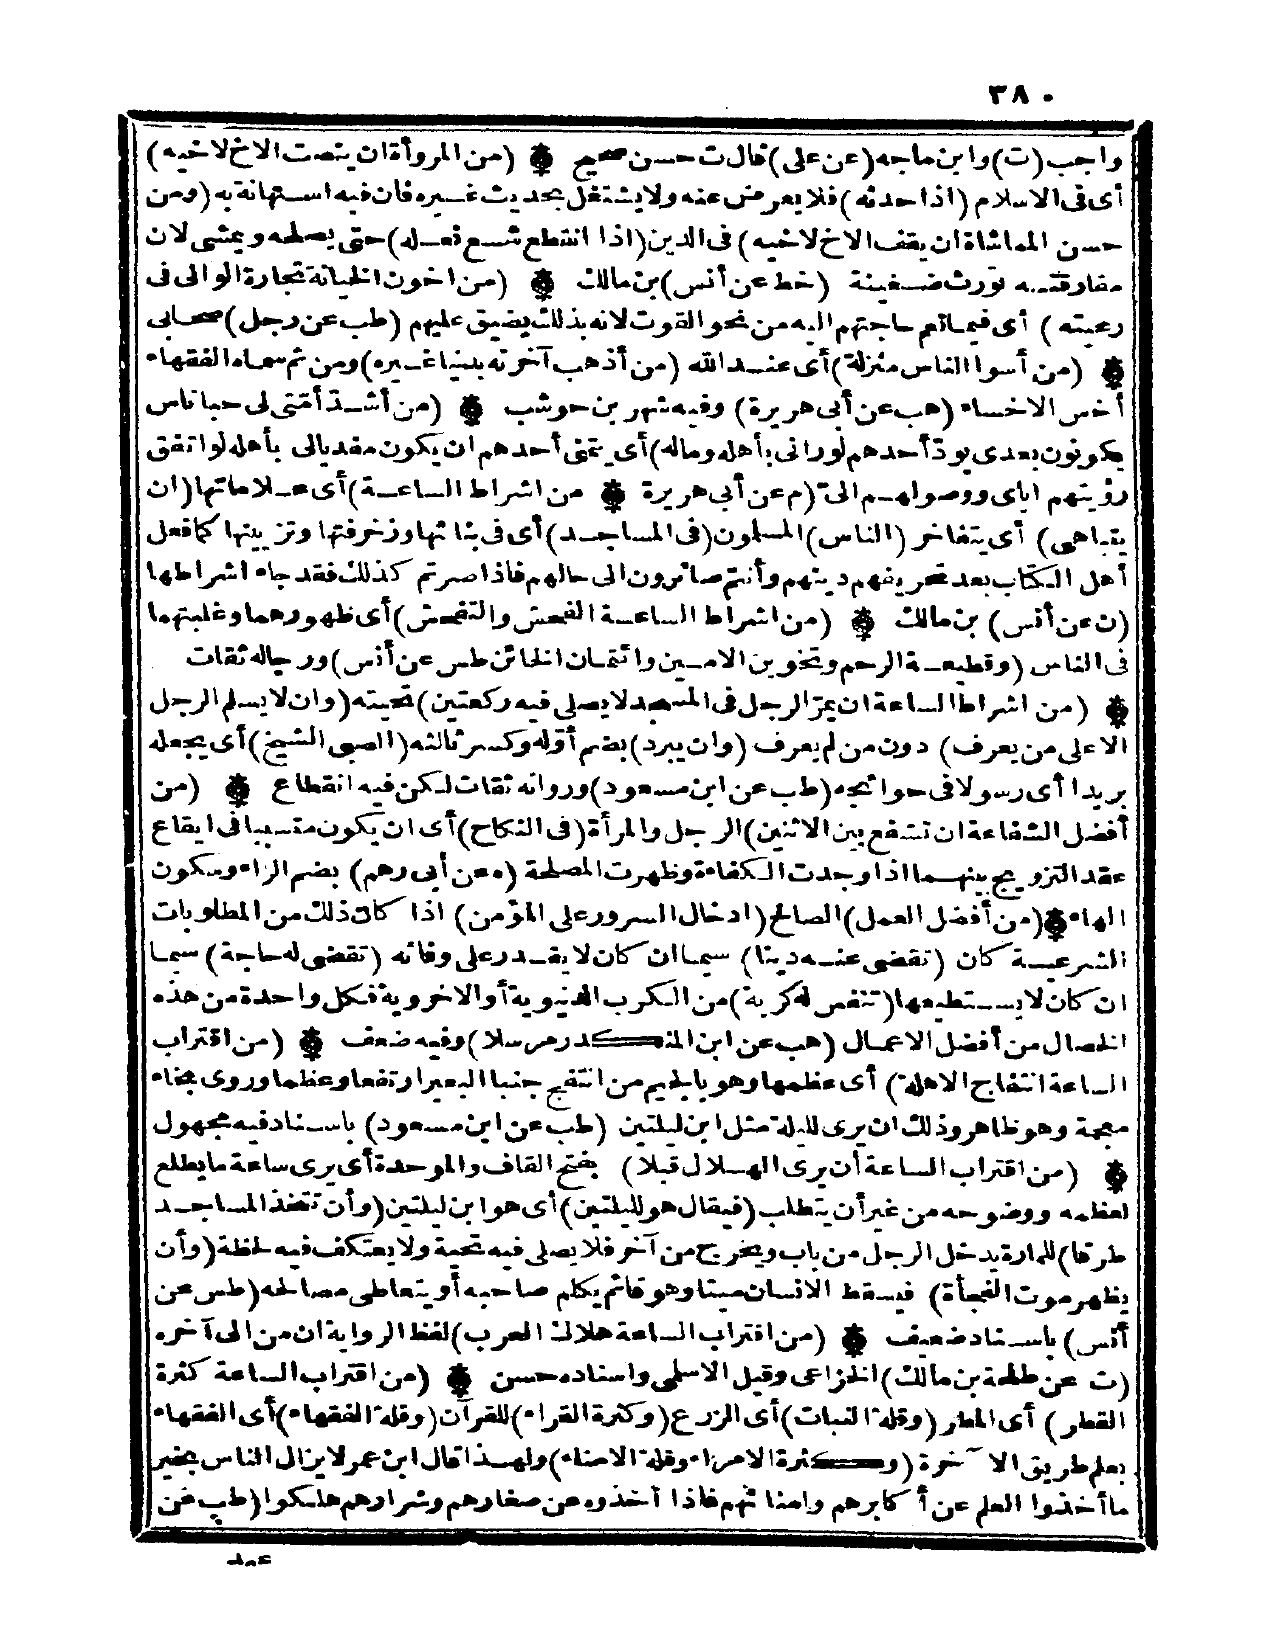 ٣٨٠
واجب (ت) وابن ماجه (عن على) قال ت حسن صحيح ۞ (من المروأة ان ينصت الاخ لاخيه)
أى فى الاسلام (اذا حدثه) فلا يعرض عنه ولا يشتغل بحديث غيره فان فيه استهانة به (ومن
حسن المماشاة ان يقف الاخ لاخيه) فى الدين (اذا انقطع شسع نعله) حتى يصلحه ويمشى لان
مفارقته تورث ضغينة (خط عن أنس) بن مالك ۞ (من اخون الخيانة تجارة الوالى فى
رعيته) أى فيما تعم حاجتهم اليه من نحو القوت لانه بذلك يضيق عليهم (طب عن رجل) صحابى
۞ (من أسوا الناس منزلة) أى عند الله (من أذهب آخرته بدنيا غيره) ومن ثم سماه الفقهاء
أخس الاخساء (هب عن أبى هريرة) وفيه شهر بن حوشب ۞ (من أشد أمتى لى حبا ناس
يكونون بعدى يود أحدهم لو رانى بأهله وماله) أى يتمنى أحدهم ان يكون مفديالى بأهله لو اتفق
رؤيتهم اياى ووصولهم الى (م عن أبى هريرة ۞ من اشراط الساعة) أى علاماتها (ان
يتباهى) أى يتفاخر (الناس) المسلمون (فى المساجد) أى فى بنائها وزخرفتها وتزيينها كما فعل
أهل الكتاب بعد تحريفهم دينهم وأنتم صائرون الى حالهم فاذا صرتم كذلك فقد جاء اشراطها
(ن عن أنس) بن مالك ۞ (من اشراط الساعة الفحش والتفحش) أى ظهورهما وغلبتهما
فى الناس (وقطيعة الرحم وتخوين الامين وائتمان الخائن طس عن أنس) ورجاله ثقات
۞ (من اشراط الساعة ان يمر الرجل فى المسجد لا يصلى فيه ركعتين) تحيته (وان لا يسلم الرجل
الا على من يعرف) دون من لم يعرف (وان يبرد) بضم أوله وكسر ثالثه (الصبى الشيخ) أى يجعله
بريدا أى رسولا فى حوائجه (طب عن ابن مسعود) ورواته ثقات لكن فيه انقطاع ۞ (من
أفضل الشفاعة ان تشفع بين الاثنين) الرجل والمرأة (فى النكاح) أى ان يكون متسببا فى ايقاع
عقد التزويج بينهما اذا وجدت الكفاءة وظهرت المصلحة (ه عن أبى رهم) بضم الراء وسكون
الهاء ۞ (من أفضل العمل) الصالح (ادخال السرور على المؤمن) اذا كان ذلك من المطلوبات
الشرعية كان (تقضى عنه دينا) سيما ان كان لا يقدر على وفائه (تقضى له حاجة) سيما
ان كان لا يستطيعها (تنفس له كربة) من الكرب الدنيوية أو الاخروية فكل واحدة من هذه
الخصال من أفضل الاعمال (هب عن ابن المنكدر مرسلا) وفيه ضعف ۞ (من اقتراب
الساعة انتفاج الاهلة) أى عظمها وهو بالجيم من انتفج جنبا البعير ارتفعا وعظما وروى بخاء
معجمة وهو ظاهر وذلك ان يرى لليلة مثل ابن ليلتين (طب عن ابن مسعود) باسناد فيه مجهول
۞ (من اقتراب الساعة أن يرى الهلال قبلا) بفتح القاف والموحدة أى يرى ساعة ما يطلع
لعظمه ووضوحه من غير أن يتطلب (فيقال هو لليلتين) أى هو ابن ليلتين (وأن تتخذ المساجد
طرقا) للمارة يدخل الرجل من باب ويخرج من آخر فلا يصلى فيه تحية ولا يعتكف فيه لحظة (وأن
يظهر موت الفجأة) فيسقط الانسان ميتا وهو قائم يكلم صاحبه أو يتعاطى مصالحه (طس عن
أنس) باسناد ضعيف ۞ (من اقتراب الساعة هلاك العرب) لفظ الرواية ان من الى آخره
(ت عن طلحة بن مالك) الخزاعى وقيل الاسلمى واسناده حسن ۞ (من اقتراب الساعة كثرة
القطر) أى المطر (وقلة النبات) أى الزرع (وكثرة القراء) للقرآن (وقلة الفقهاء) أى الفقهاء
بعلم طريق الآخرة (وكثرة الامراء وقلة الامناء) ولهذا قال ابن عمر لا يزال الناس بخير
ما أخذوا العلم عن أكابرهم وامنائهم فاذا أخذوه عن صغارهم وشرارهم هلكوا (طب عن
عبد